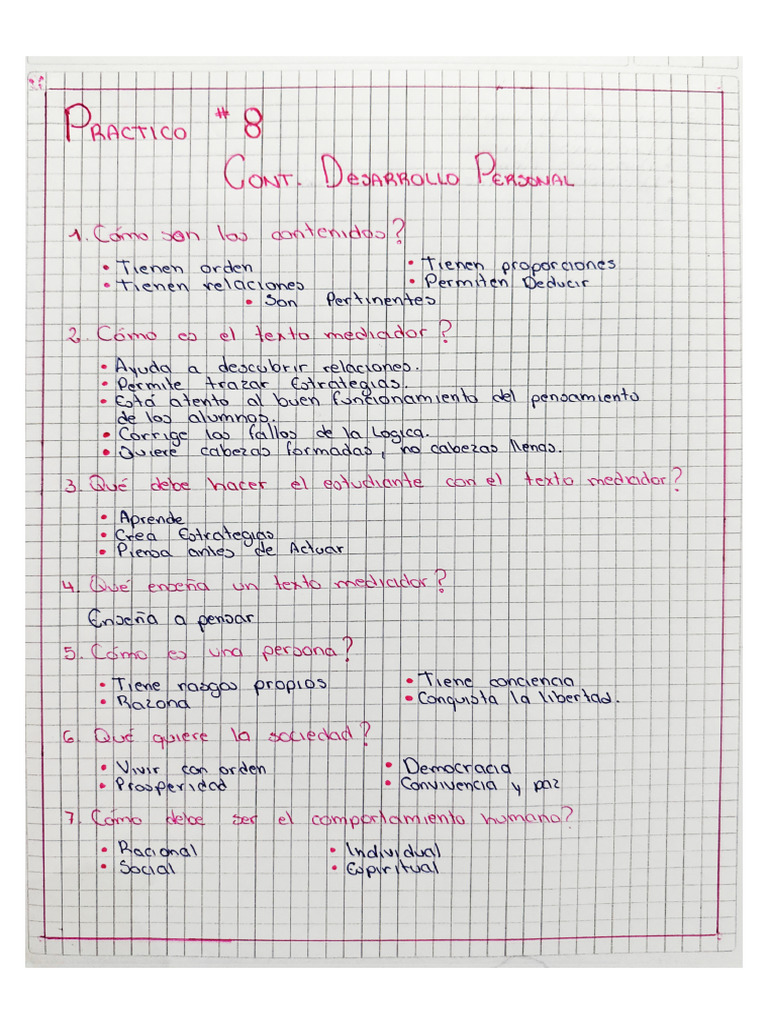 PRACTICO # 8
CONT. DESARROLLO PERSONAL
1. Cómo son los contenidos?
• Tienen orden • Tienen proporciones
• tienen relaciones • Permiten Deducir
• Son Pertinentes
2. Cómo es el texto mediador?
• Ayuda a descubrir relaciones.
• Permite trazar Estrategias.
• Está atento al buen funcionamiento del pensamiento
de los alumnos.
• Corrige los fallos de la Logica.
• Quiere cabezas formadas, no cabezas llenas.
3. Qué debe hacer el estudiante con el texto mediador?
• Aprende
• Crea Estrategias
• Piensa antes de Actuar
4. Qué enseña un texto mediador?
Enseña a pensar
5. Cómo es una persona?
• Tiene rasgos propios • Tiene conciencia
• Razona • Conquista la libertad.
6. Qué quiere la sociedad?
• Vivir con orden • Democracia
• Prosperidad • Convivencia y paz
7. Cómo debe ser el comportamiento humano?
• Racional • Individual
• Social • Espiritual